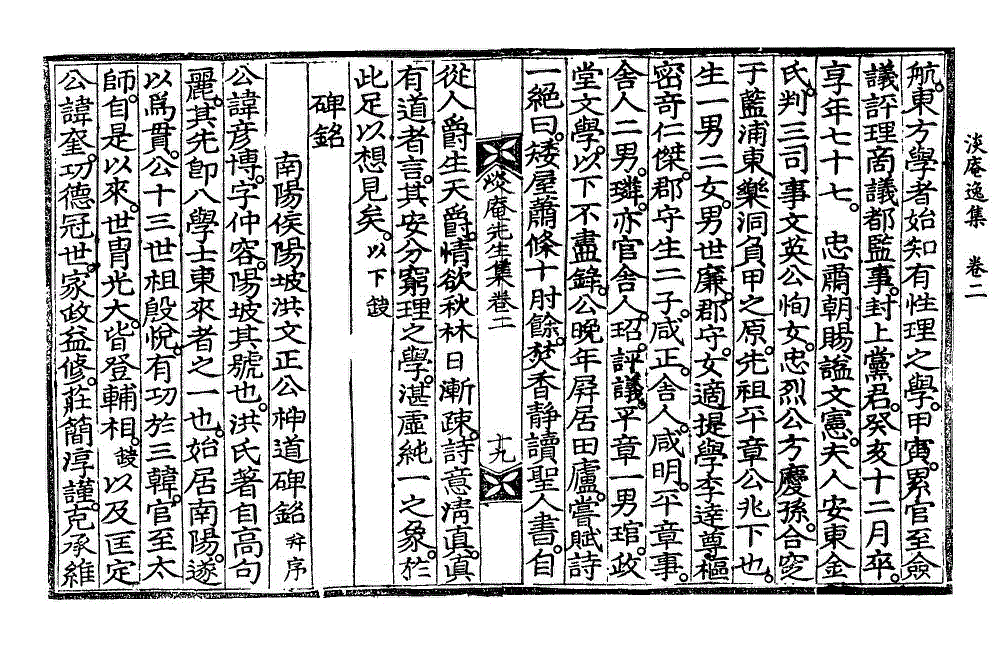 淡庵逸集　卷二
航。東方學者始知有性理之學。甲寅。累官至僉
議評理商議都監事。封上黨君。癸亥十二月卒。
享年七十七。 忠肅朝賜謚文憲。夫人安東金
氏。判三司事文英公恂女。忠烈公方慶孫。合窆
于藍浦東樂洞負甲之原。先祖平章公兆下也。
生一男二女。男世廉。郡守。女適提學李達尊。樞
密奇仁傑。郡守生二子。咸正。舍人。咸明。平章事。
舍人二男。璘。亦官舍人。玿。評議。平章一男琯。政
堂文學。以下不盡錄。公晚年屛居田廬。嘗賦詩
一絶曰。矮屋蕭條十肘餘。焚香靜讀聖人書。自
淡庵先生集卷二　十九
從人爵生天爵。情欲秋林日漸疎。詩意淸眞。眞
有道者言。其安分窮理之學。湛虛純一之象。於
此足以想見矣。以下鈌
碑銘
南陽侯陽坡洪文正公神道碑銘 幷序
公諱彦博。字仲容。陽坡其號也。洪氏著自高句
麗。其先卽八學士東來者之一也。始居南陽。遂
以爲貫。公十三世祖殷悅。有功於三韓。官至太
師。自是以來。世冑光大。皆登輔相。鈌 以及匡定
公諱奎。功德冠世。家政益修。莊簡淳謹。克承維